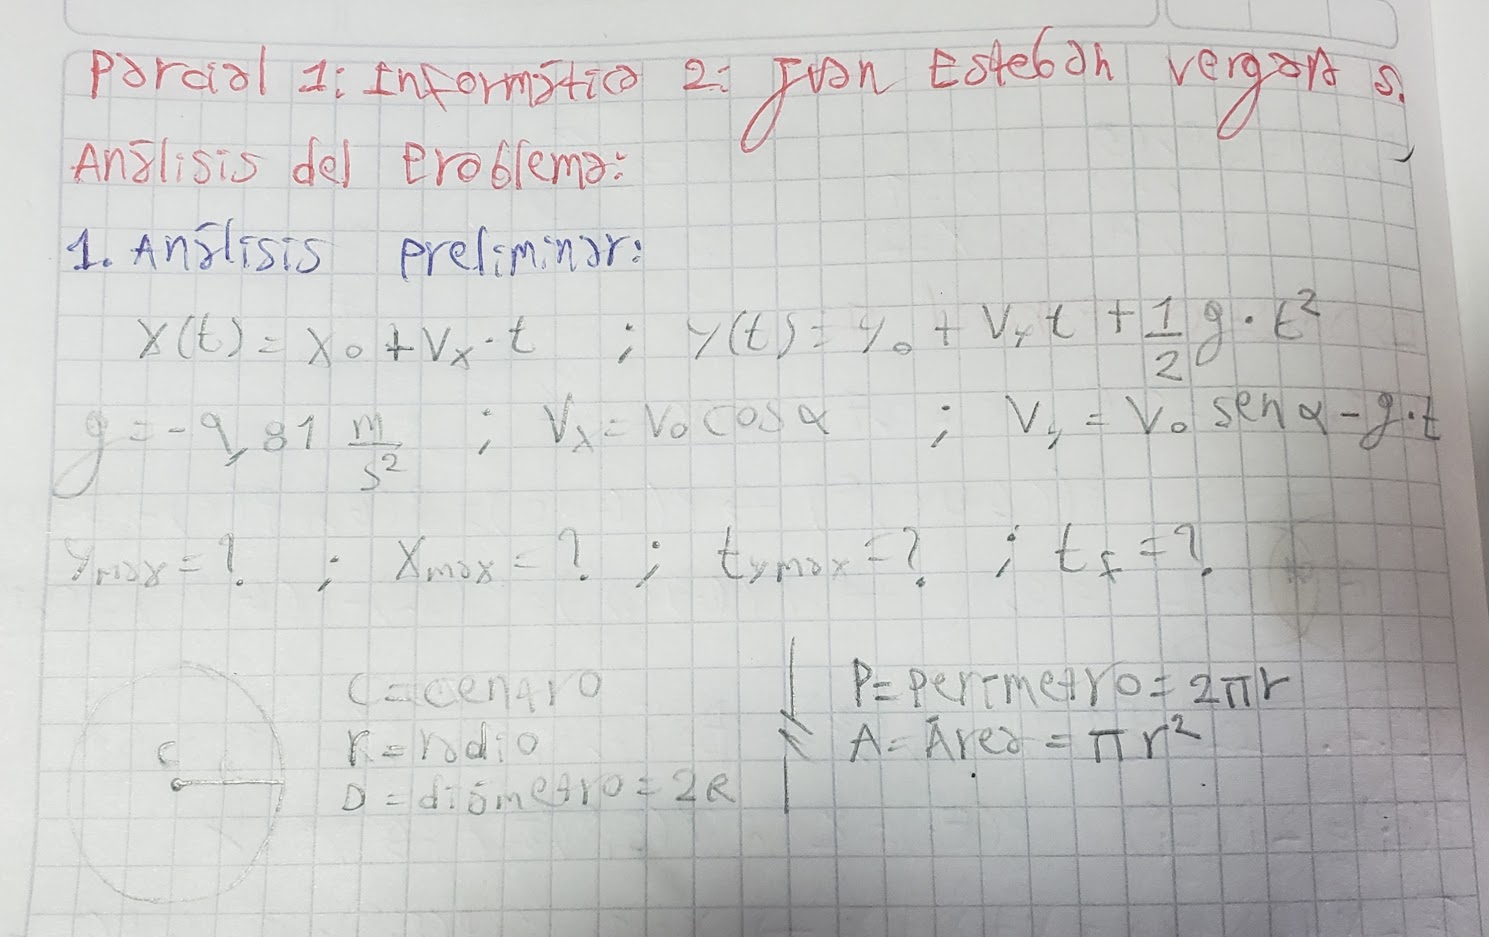 Parcial 1: Informática 2: Juan Esteban vergara s.
Análisis del Problema:
1. Análisis preliminar:
X(t) = X0 + Vx · t ; y(t) = y0 + Vy t + 1/2 g · t²
g = -9,81 m/s² ; Vx = V0 cos α ; Vy = V0 sen α - g · t
ymax = ? ; Xmax = ? ; tymax = ? ; tf = ?
C = centro
R = radio
D = diámetro = 2R
P = perímetro = 2πr
A = Área = πr²
C